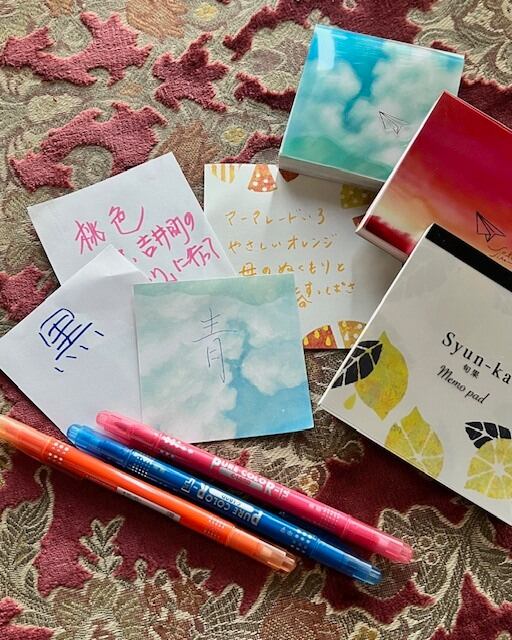 桃色
吉井町の
にチュウ
マーマレードいろ
やさしいオレンジ
母のぬくもりと
黒
青
Syun-ka
旬菓
Memo pad
PURE COLOR-F
PURE COLOR-F